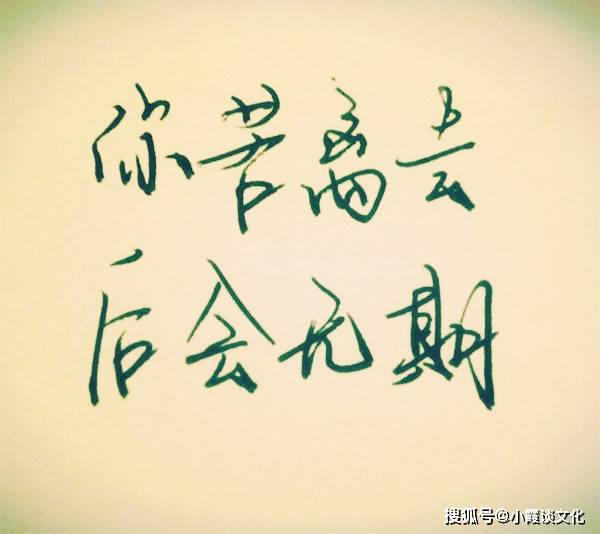 你若离去
后会无期
搜狐号@小霞谈文化